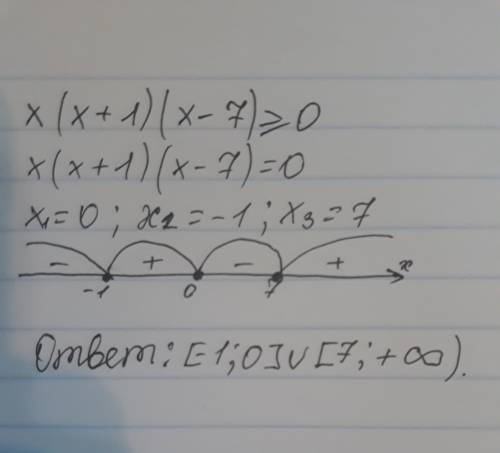 x(x+1)(x-7)≥0
x(x+1)(x-7)=0
x₁=0; x₂=-1; x₃=7
- + - + x
-1 0 7
Ответ: [-1;0]∪[7;+∞).